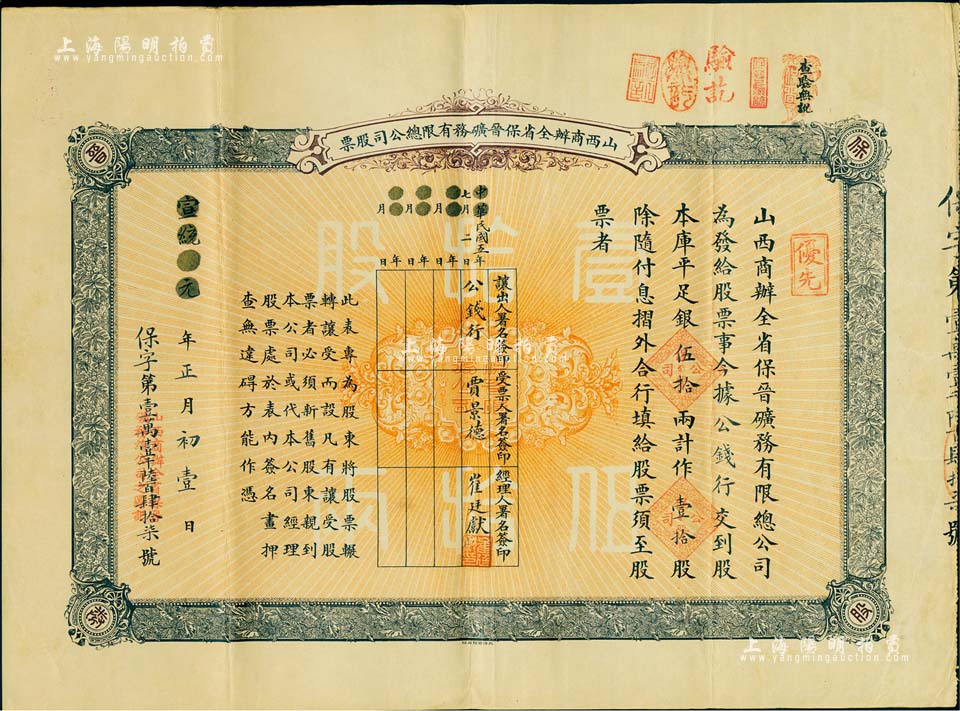 上海陽明拍賣
www.yangmingauction.com
驗訖
查驗無訛
山西商辦全省保晉礦務有限總公司股票
保
晉
優先
山西商辦全省保晉礦務有限總公司
為發給股票事今據公錢行交到股
本庫平足銀伍拾兩計作壹拾股
除隨付息摺外合行填給股票須至股
票者
壹拾股
伍拾兩
讓出人署名簽印
受票人署名簽印
經理人署名簽印
中華民國五年七月二日
公錢行
賈景德
崔廷獻
年 月 日
年 月 日
年 月 日
此表專為股東將股票輾
轉讓受而設凡有讓受股
票者必須新舊股東親到
本公司或代本公司經理
股票處於表內簽名畫押
查無違碍方能作憑
宣統元年正月初壹日
保字第壹萬壹千陸百肆拾柒號
股
上海陽明拍賣
www.yangmingauction.com
上海陽明拍賣
www.yangmingauction.com